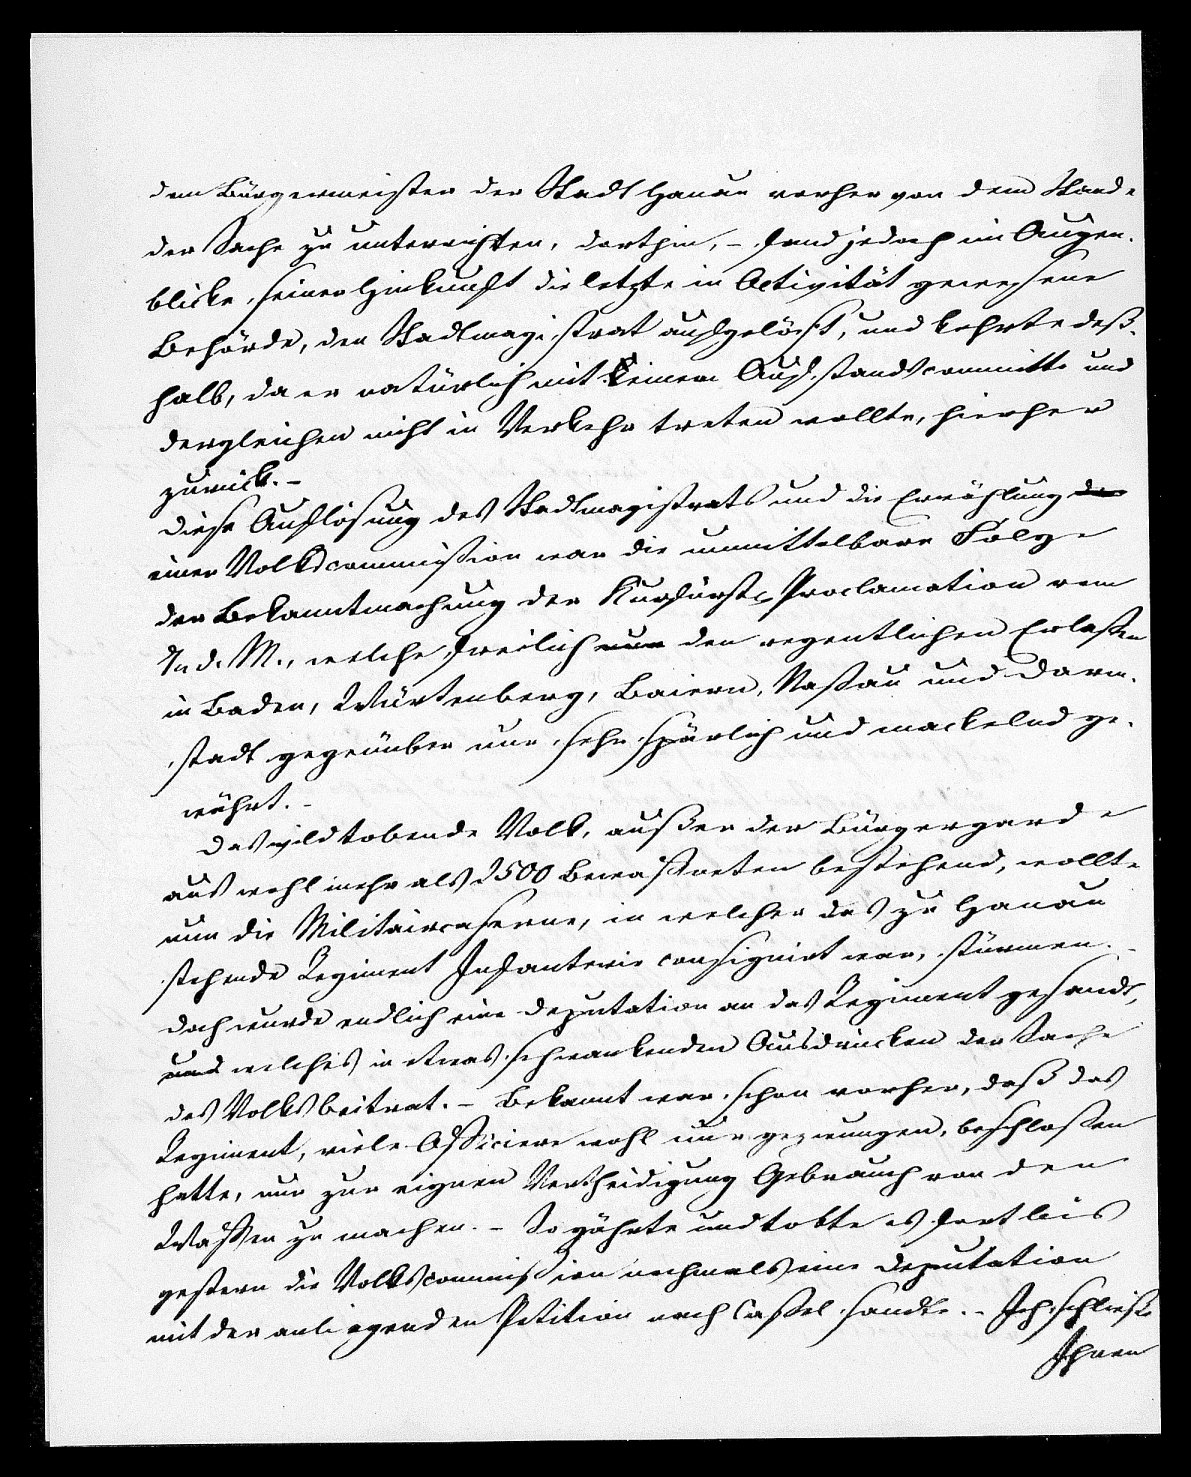 dem Bürgermeister der Stadt Hanau vorher von dem Stande
der Sache zu unterrichten, dorthin, – fand jedoch im Augen-
blicke seiner Hinkunft die letzte in Activität gewesene
Behörde, den Stadtmagistrat aufgelöst, und kehrte deß-
halb, da er natürlich mit keinem Aufstandscommitte und
dergleichen nicht in Verkehr treten wollte, hierher
zurück. –
Diese Auflösung des Stadtmagistrats und die Erwählung der
einer Volkscommission war die unmittelbare Folge
der Bekanntmachung der Kurfürstl. Proclamation vom
7n d. M., welche freilich nur den regentlichen Erlaßen
in Baden, Würtenberg, Baiern, Naßau und Darm-
stadt gegenüber nur sehr spärlich und mackelnd ge-
währt. –
Das wild tobende Volk, außer der Bürgergarde
aus wohl mehr als 2500 Bewaffneten bestehend, wollte
nun die Militaircaserne, in welcher das zu Hanau
stehende Regiment Infanterie consignirt war, stürmen. –
doch wurde endlich eine Deputation an das Regiment gesandt,
und welches in etwas schwankenden Ausdrücken der Sache
des Volks beitrat. – Bekannt war schon vorher, daß das
Regiment, viele Officiere wohl nur gezwungen, beschloßen
hatte, nur zur eignen Vertheidigung Gebrauch von den
Waffen zu machen. – So gährte und tobte es fort bis
gestern die Volkscommißion nochmals eine Deputation
mit der anliegenden Petition nach Caßel sandte. – Ich schließe
Ihnen